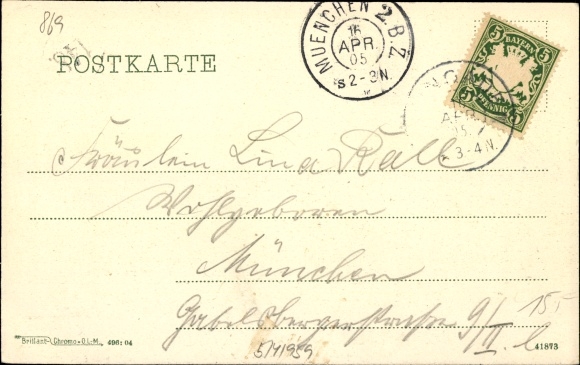 869
POSTKARTE
MUENCHEN 2. B.Z.
16
APR.
05
S 2-3N.
5 BAYERN 5
5 PFENNIG 5
APR.
05
3-4 N.
Fräulein Lina Rall
Wohlgeboren
München
Gabelsbergerstraße 9/II l
15
Brillant-Chromo-O.L.M., 496:04
5/41959
41873